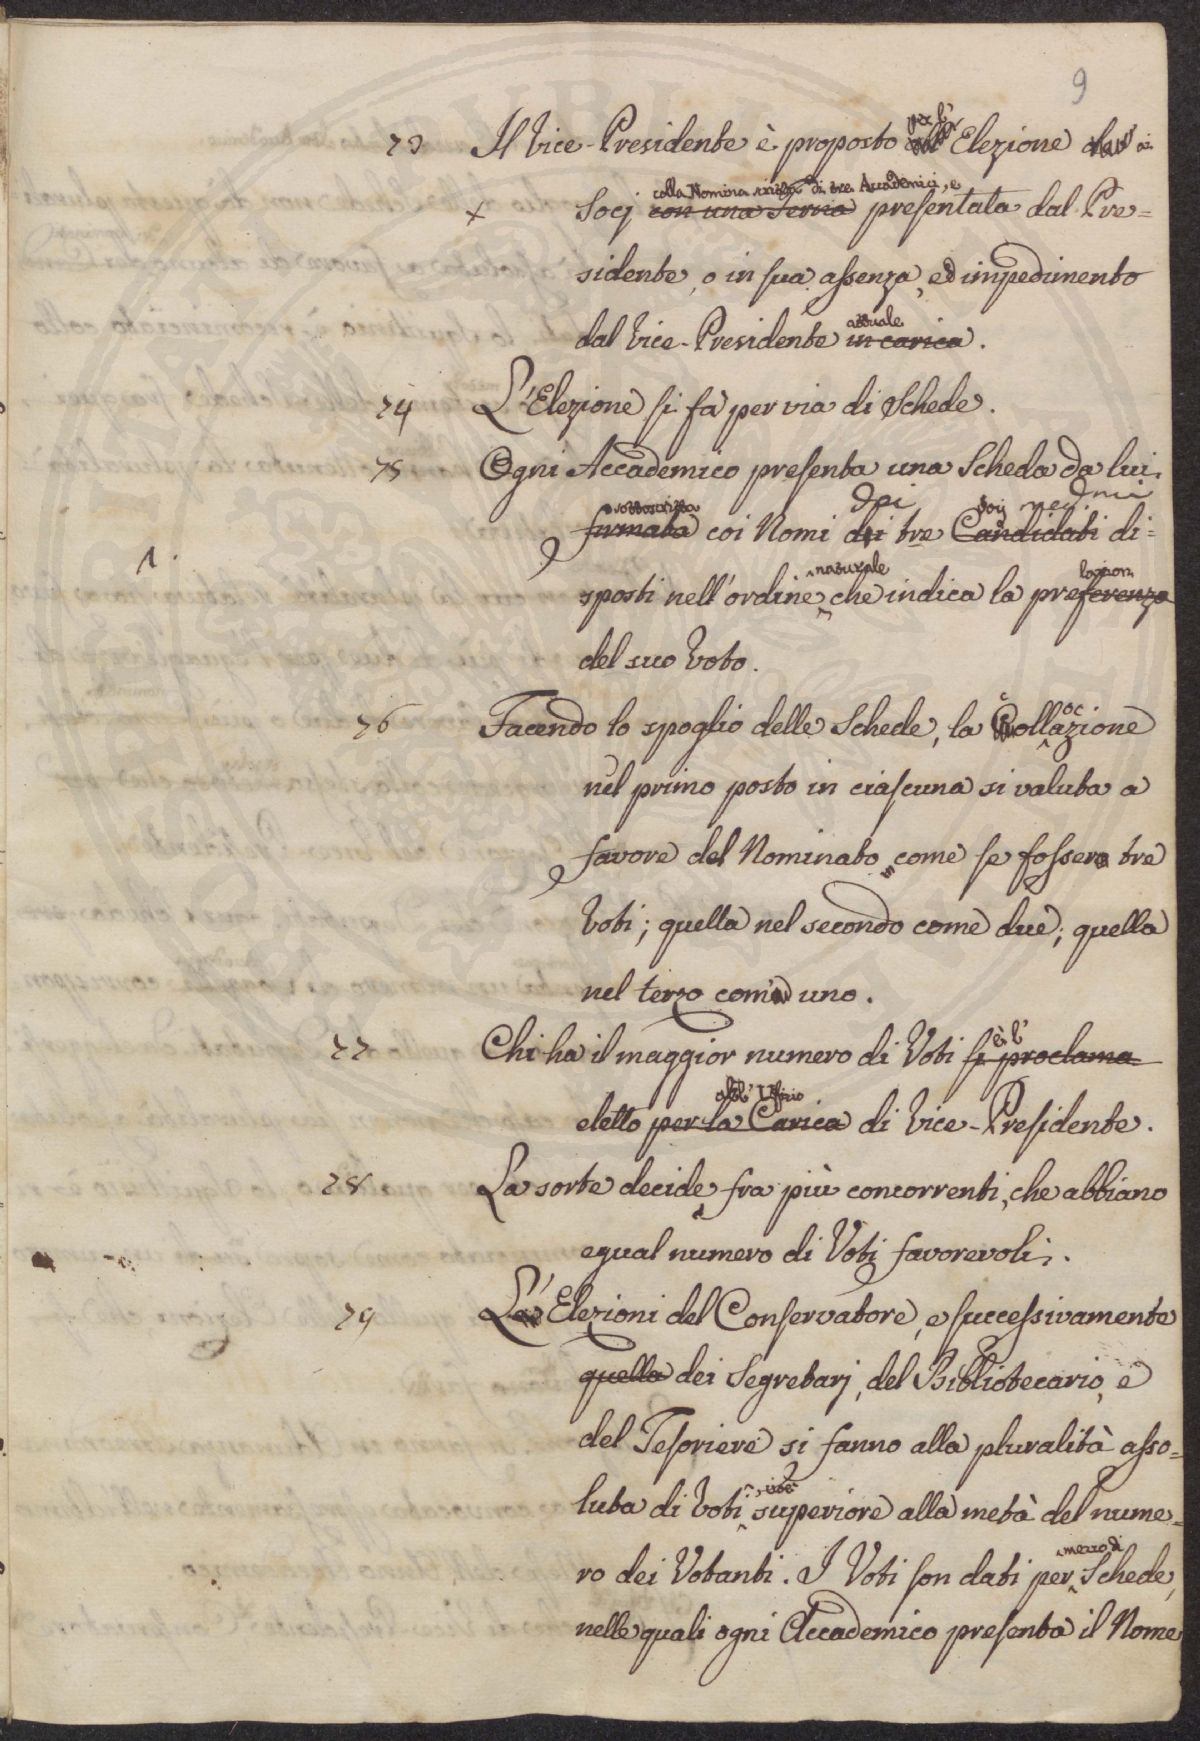 9
73 Il Vice-Presidente è proposto per l' Elezione ai
colla Nomina di tre Accademici, e
× Socj con una Terna presentata dal Pre=
sidente, o in sua assenza, ed impedimento
attuale
dal Vice-Presidente in carica.
74 L'Elezione si fà per via di Schede.
75 Ogni Accademico presenta una Scheda da lui
sottoscritta dei
firmata coi Nomi dei tre Candidati di=
1.
naturale
sposti nell'ordine che indica la preferenza
del suo Voto.
76 Facendo lo spoglio delle Schede, la Collocazione
nel primo posto in ciascuna si valuta a
favore del Nominato, come se fossero tre
Voti; quella nel secondo come due; quella
nel terzo come uno.
è l'
77 Chi ha il maggior numero di Voti si proclama
all' Uffizio
eletto per la Carica di Vice-Presidente.
78 La sorte decide fra più concorrenti, che abbiano
egual numero di Voti favorevoli.
79 L'Elezioni del Conservatore, e successivamente
quella dei Segretarj, del Bibliotecario, e
del Tesoriere si fanno alla pluralità asso=
luta di Voti superiore alla metà del nume=
mezzo di
ro dei Votanti. I Voti son dati per Schede,
nelle quali ogni Accademico presenta il Nome